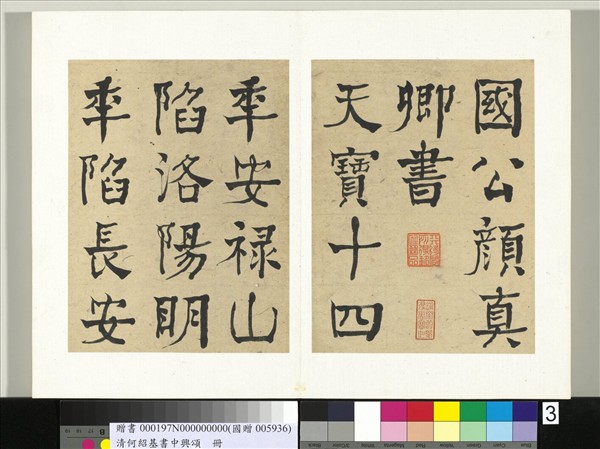 國公顏真
卿書
天寶十四
年安禄山
陷洛陽明
年陷長安
贈書 000197N000000000(國贈 005936)
清何紹基書中興頌　冊
3